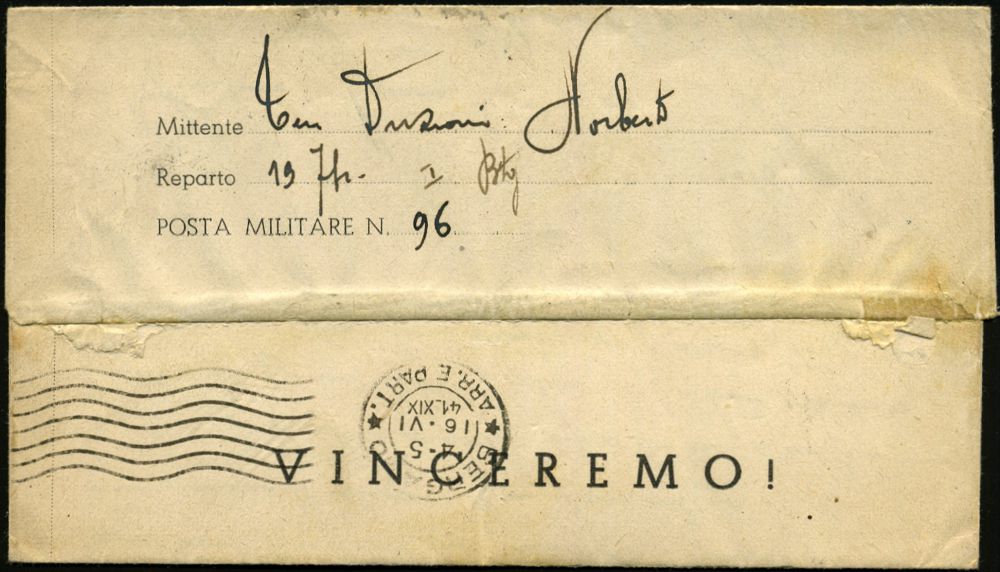 Mittente Ten Norberto
Reparto 19 Ftr. I Btg
POSTA MILITARE N. 96
ARR. E PART.
41_XIX
16·VI
4-5
BERGAMO
VINCEREMO!